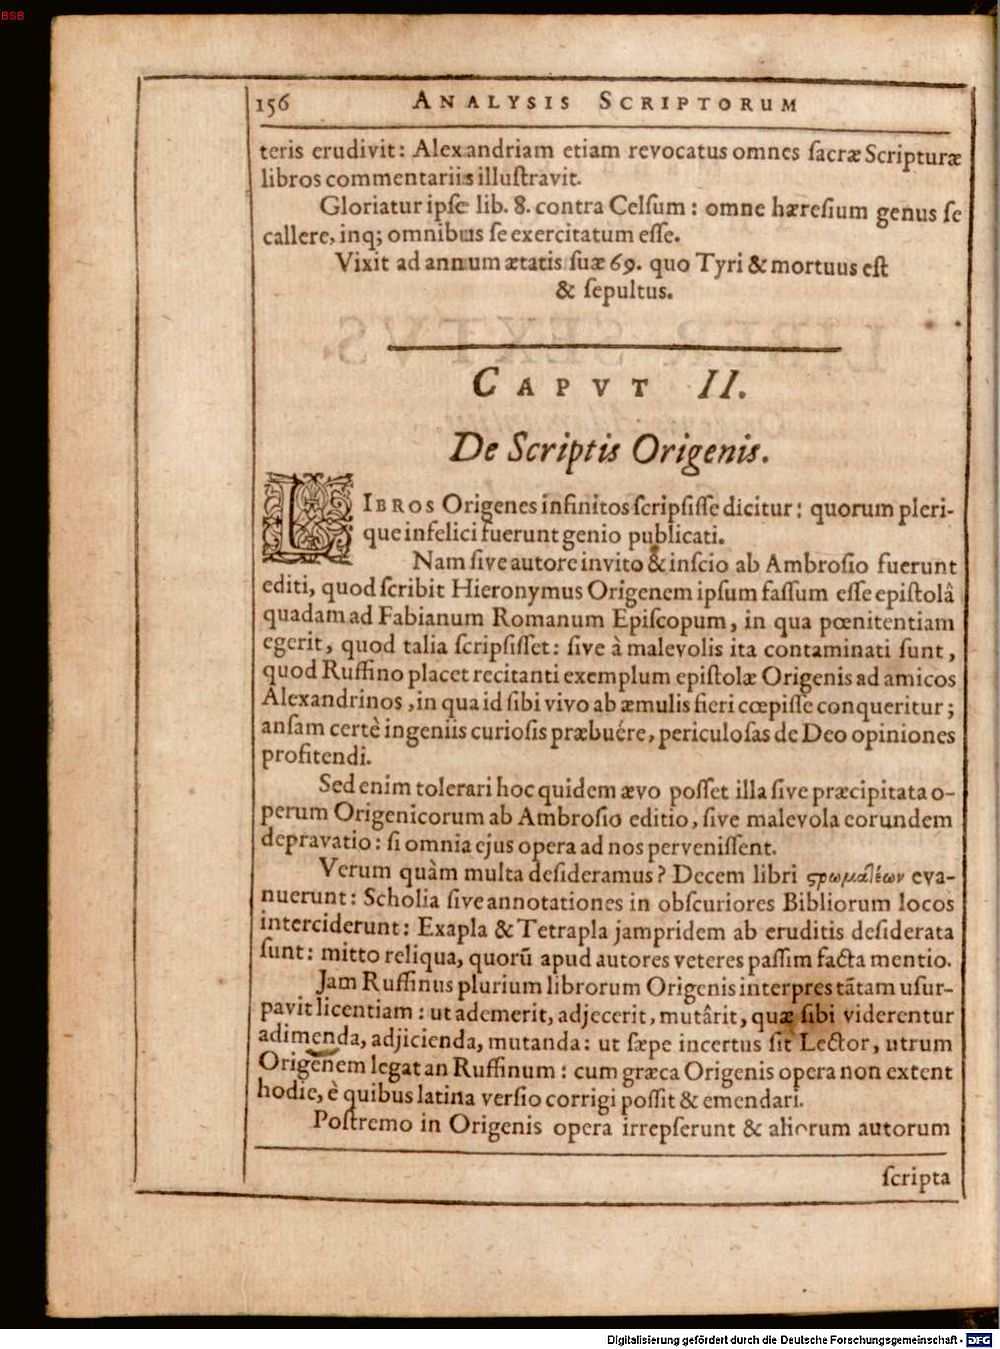 BSB
156 ANALYSIS SCRIPTORUM
teris erudivit: Alexandriam etiam revocatus omnes ſacræ Scripturæ
libros commentariis illuſtravit.
Gloriatur ipſe lib. 8. contra Celſum: omne hæreſium genus ſe
callere, inq; omnibus ſe exercitatum eſſe.
Vixit ad annum ætatis ſuæ 69. quo Tyri & mortuus eſt
& ſepultus.
CAPVT II.
De Scriptis Origenis.
LIBROS Origenes infinitos ſcripſiſſe dicitur: quorum pleri-
que infelici fuerunt genio publicati.
Nam ſive autore invito & inſcio ab Ambroſio fuerunt
editi, quod ſcribit Hieronymus Origenem ipſum faſſum eſſe epiſtolâ
quadam ad Fabianum Romanum Epiſcopum, in qua pœnitentiam
egerit, quod talia ſcripſiſſet: ſive à malevolis ita contaminati ſunt,
quod Ruffino placet recitanti exemplum epiſtolæ Origenis ad amicos
Alexandrinos, in qua id ſibi vivo ab æmulis fieri cœpiſſe conqueritur;
anſam certè ingeniis curioſis præbuére, periculoſas de Deo opiniones
profitendi.
Sed enim tolerari hoc quidem ævo poſſet illa ſive præcipitata o-
perum Origenicorum ab Ambroſio editio, ſive malevola eorundem
depravatio: ſi omnia ejus opera ad nos perveniſſent.
Verum quàm multa deſideramus? Decem libri ϛρωμαλέων eva-
nuerunt: Scholia ſive annotationes in obſcuriores Bibliorum locos
interciderunt: Exapla & Tetrapla jampridem ab eruditis deſiderata
ſunt: mitto reliqua, quorũ apud autores veteres paſſim facta mentio.
Jam Ruffinus plurium librorum Origenis interpres tãtam uſur-
pavit licentiam: ut ademerit, adjecerit, mutârit, quæ ſibi viderentur
adimenda, adjicienda, mutanda: ut ſæpe incertus ſit Lector, utrum
Origenem legat an Ruffinum: cum græca Origenis opera non extent
hodie, è quibus latina verſio corrigi poſſit & emendari.
Poſtremo in Origenis opera irrepſerunt & aliorum autorum
ſcripta
Digitalisierung gefördert durch die Deutsche Forschungsgemeinschaft - DFG